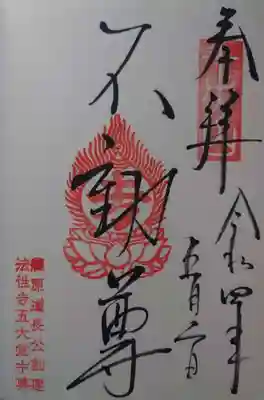 奉拝
令和四年
五月二日
不動尊
藤原道長公創建
法性寺五大堂本尊